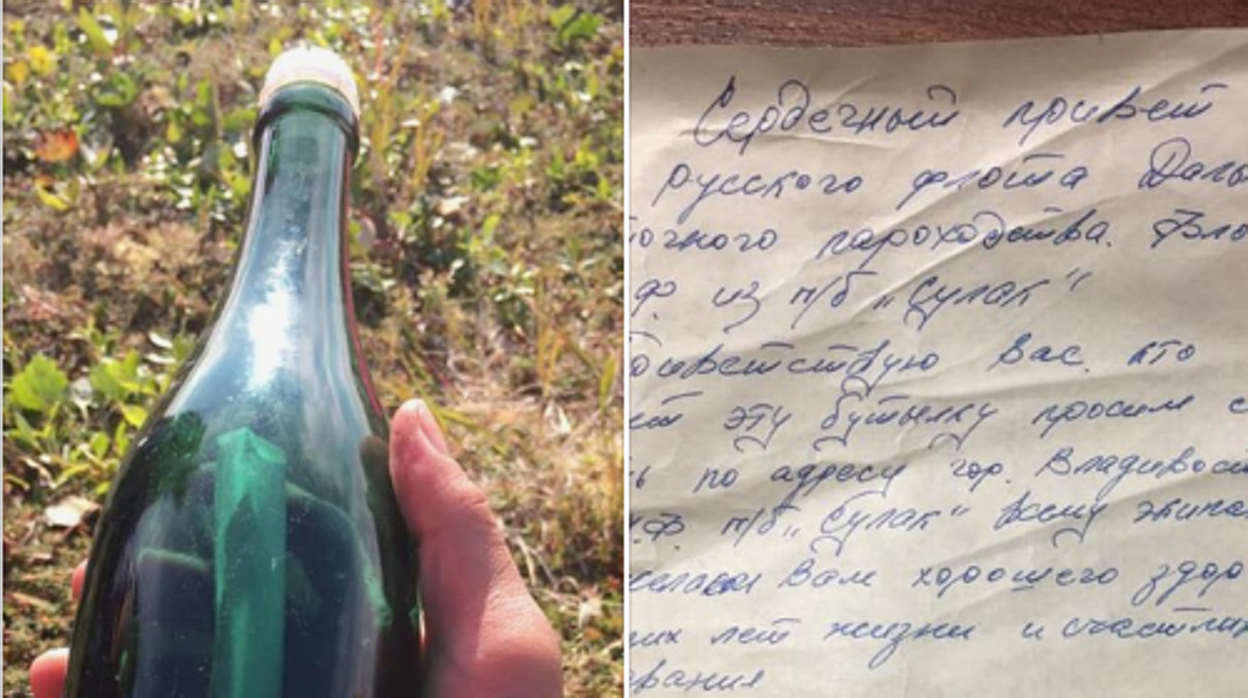 Сердечный привет
русского флота Даль
точного пароходства.
Ф. из т/б „Сулак"
риветствую Вас, кто
ет эту бутылку просим с
ь по адресу гор. Владивост
.Ф. т/б „Сулак" всему экипа
желаем Вам хорошего здор
гих лет жизни и счастлив
вания